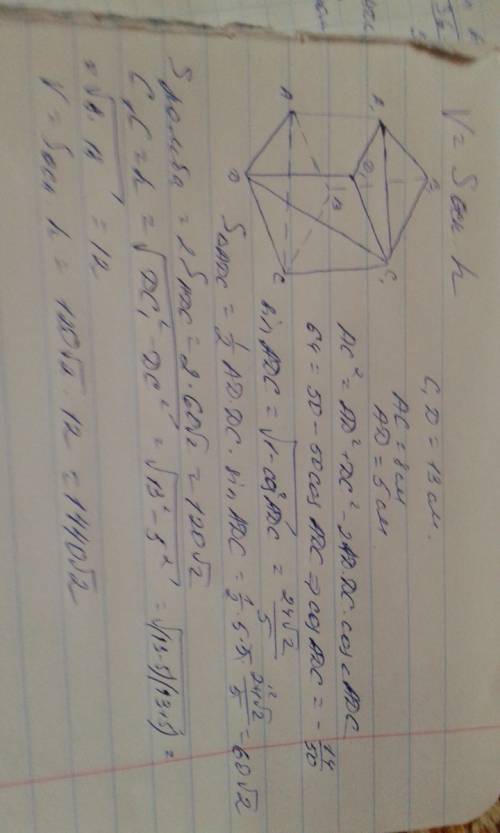 V = Sосн h
C₁D = 13 см.
AC = 8 см
AD = 5 см
A₁
B₁
C₁
D₁
A
B
C
D
AC² = AD² + DC² - 2AD·DC·cos∠ADC
64 = 50 - 50cos ADC ⇒ cos ADC = - 14/50
sin ADC = √1-cos²ADC = 24√2/5
S△ADC = 1/2 AD·DC·sin ADC = 1/2·5·5·24√2/5 = 60√2
Sромба = 2SADC = 2·60√2 = 120√2
C₁C = h = √DC₁² - DC² = √13² - 5² = √(13-5)(13+5) =
= 12
V = Sосн h = 120√2·12 = 1440√2